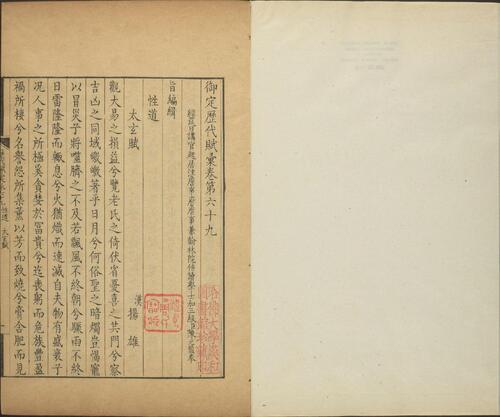 御定歷代賦彙卷第六十九
經筵日講官起居注詹事府詹事兼翰林院侍讀學士加三級臣陳元龍奉
旨編輯
性道
太玄賦
漢揚雄
觀大易之損益兮覽老氏之倚伏省憂喜之共門兮察
吉凶之同域皦皦著乎日月兮何俗聖之暗燭豈愒寵
以冒災兮將噬臍之不及若飄風不終朝兮驟雨不終
日雷隆隆而輒息兮火猶熾而速滅自夫物有盛衰兮
況人事之所極奚貪婪於富貴兮迄喪躬而危族豐盈
禍所棲兮名譽怨所集薰以芳而致燒兮膏含肥而見